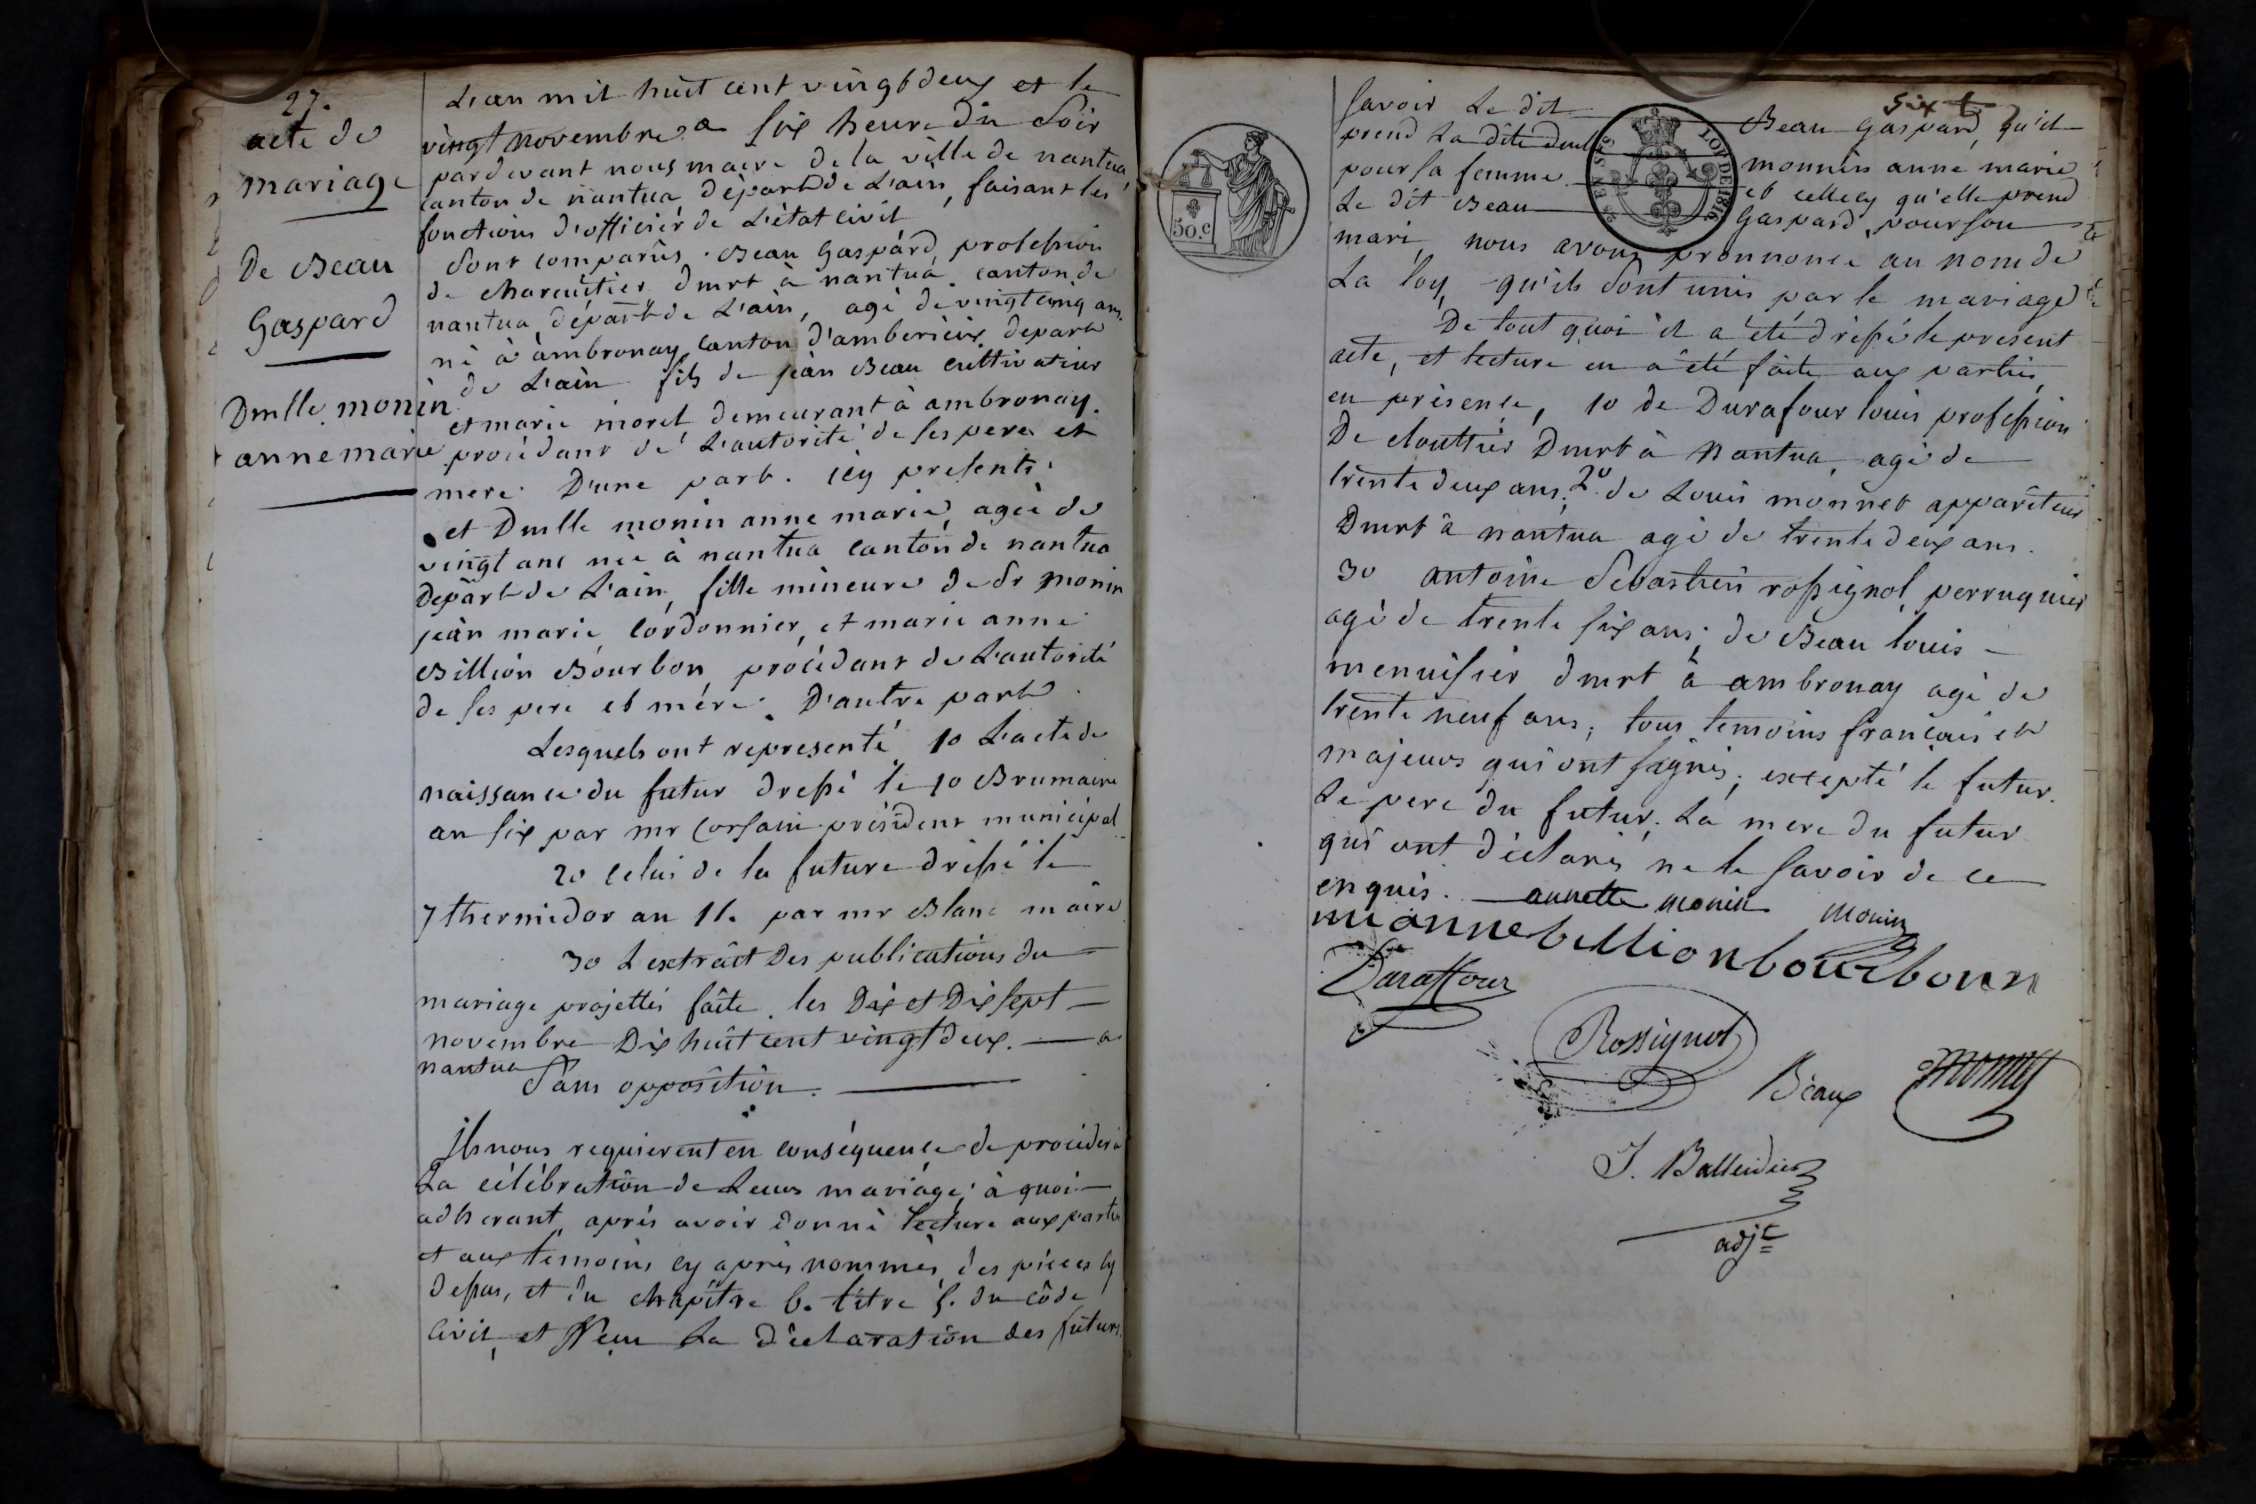 27.
acte de
mariage
De Beau
Gaspard
Dmlle monin
anne marie
L'an mil huit cent vingt deux et le
vingt novembre a six heure du soir
pardevant nous maire de la ville de nantua
canton de nantua départt de L'ain, faisant les
fonctions d'officier de L'état civil
Sont comparûs Beau Gaspard, profession
de charcutier dmrt à nantua canton de
nantua, départt de L'ain, agé de vingt cinq ans
né à ambronay canton d'amberieux depart
de L'ain fils de jean Beau cultivateur
et marie morel demeurant à ambronay.
procédant de L'autorité de ses pere et
mere D'une part. icy presents.
et Dmlle monin anne marie, agée de
vingt ans née à nantua canton de nantua
départt de L'ain, fille mineure de Sr monin
jean marie, cordonnier, et marie anne
Billion Bourbon procédant de L'autorité
de ses pere et mére D'autre part
Lesquels ont representé 1o L'acte de
naissance du futur dressé le 10 Brumaire
an six par mr Corsain président municipal
2o celui de la future dressé le
7 thermidor an 11. par mr Blanc maire
3o L'extrait Des publications du
mariage projettés faite les Dix et Dix sept
novembre Dix huit cent vingt deux. a
nantua
Sans opposition.
ils nous requierent en conséquence de procéder à
La célébration de Leurs mariage; à quoi
adherant, aprés avoir donné lecture aux parties
et aux témoins cy aprés nommés, des piéces cy
dessus, et du chapitre 6. titre 5. du côde
Civil, et Reçu La déclaration des futurs.
six
50.c
LOI DE 1816
Savoir Le dit Beau Gaspard, qu'il
prend La dite dmlle monnin anne marie
pour sa femme et celle cy qu'elle prend
Le dit Beau Gaspard, pour son
mari, nous avons prononcé au nom de
La loy, qu'ils sont unis par le mariage
De tout quoi il a été dréssé le present
acte, et lecture en a été faite aux parties,
en présence, 1o de Durafour louis profession
De cloutier Dmrt à Nantua, agé de
trente deux ans; 2o de Louis monnet appariteur
Dmrt à nantua agé de trente deux ans.
3o antoine Sebastien rossignol, perruquier
agé de trente six ans; de Beau louis
menuisier dmrt à ambronay agé de
trente neuf ans; tous temoins français et
majeurs qui ont signés; excepté le futur.
Le pere du futur. La mere du futur
qui ont déclarés ne le savoir de ce
enquis. annette monin monin
mianne billion bourbonn
Duraffour
Rossignol
Béaux
monnet
J. Balleidier
adjt